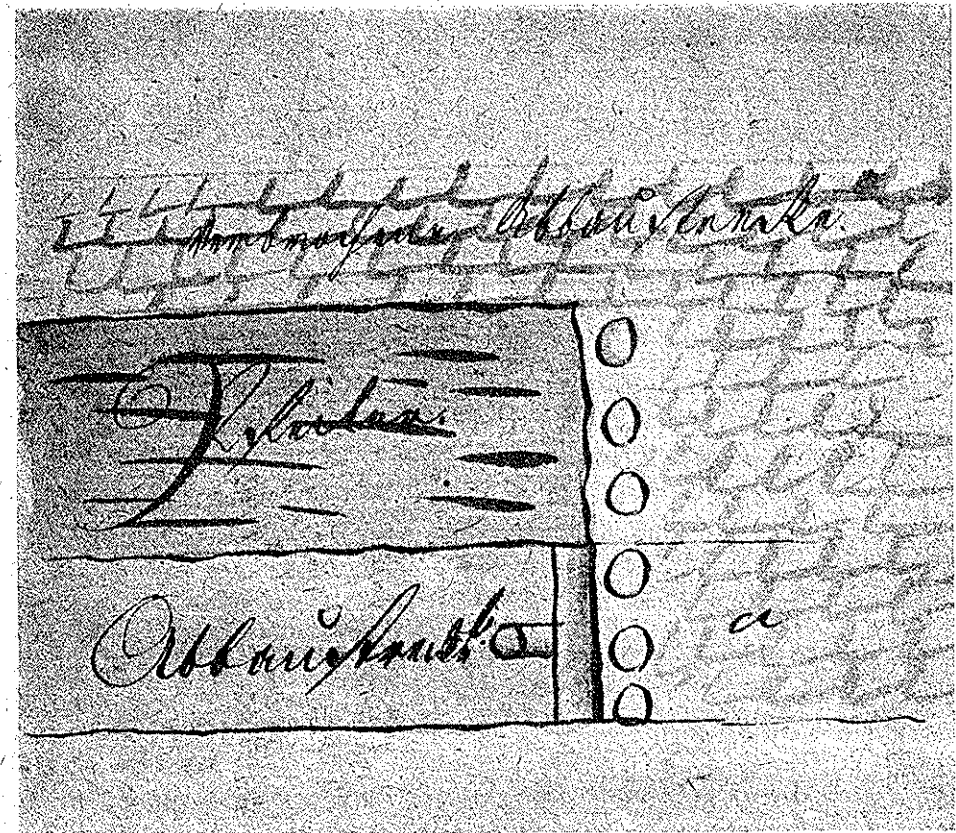 verbrochene Abbaustrecke.
Pfeiler.
Abbaustreck.
a